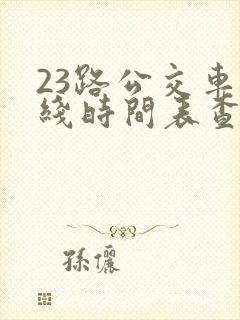 23路公交車
綫時間表查
孫儷